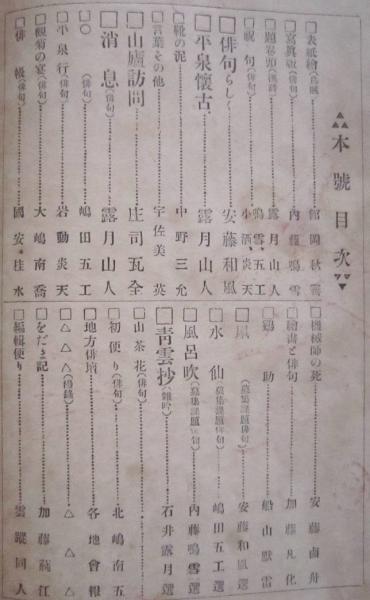 本號目次
□表紙繪
□寫眞版(俳句)……內藤鳴雪
□題卷頭……露月山人
□祝句(俳句)……鳴雪、五工、小酒、炎天
□俳句らしく……安藤和風
□平泉懷古……露月山人
□靴の泥……中野三允
□言葉その他……宇佐美英
□山廬訪問……庄司瓦全
□消息(俳句)……露月山人
□○(俳句)……嶋田五工
□平泉行(俳句)……岩動炎天
□觀菊の宴(俳句)……大嶋南喬
□俳帳(俳句)……國安桂水
□機械師の死……安藤卣舟
□繪畫と俳句……加藤凡化
□鷄助……船山默雷
□鳳(募集課題俳句)……安藤和風選
□水仙(募集課題俳句)……嶋田五工選
□風呂吹(募集課題俳句)……內藤鳴雪選
□靑雲抄(雜吟)……石井露月選
□山茶花(俳句)
□初便り(俳句)……北嶋南五
□地方俳壇……各地會報
□△△△……△△△
□をだまき記……加藤
□編輯便り……雲蹤同人